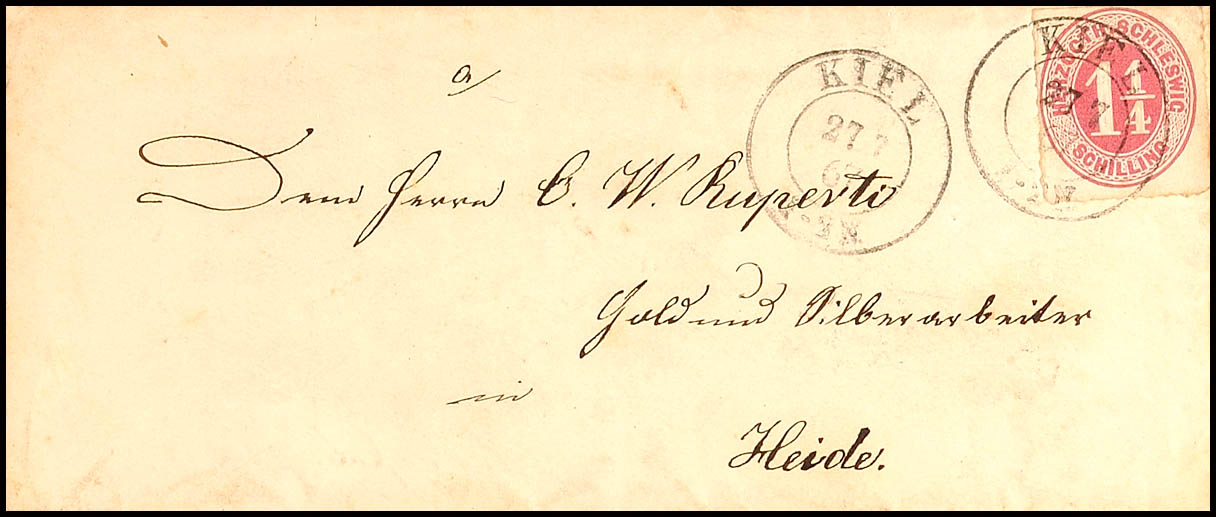 a
Dem Herrn C. W. Ruperti
Gold und Silberarbeiter
in
Heide.
KIEL
27 7
KIEL
27 7
HERZOGTH. SCHLESWIG
1 1/4
SCHILLING